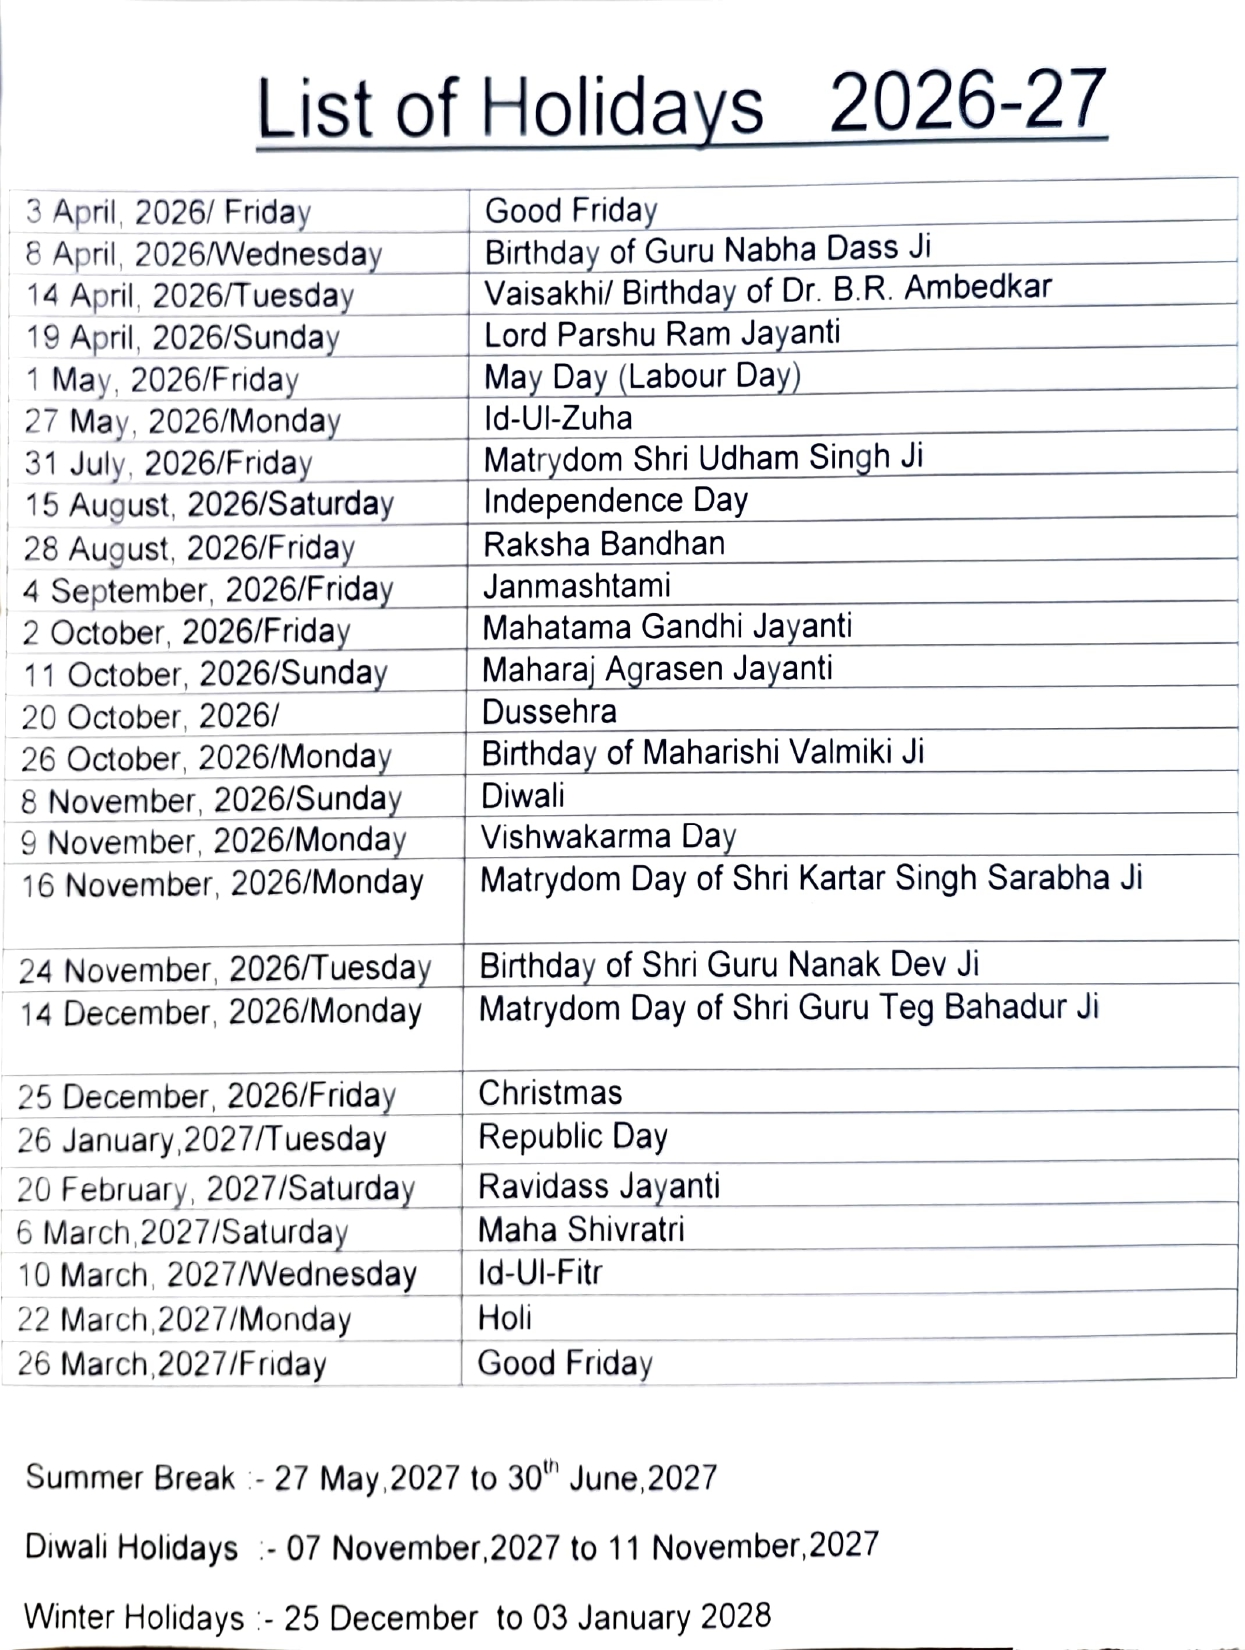 List of Holidays 2026-27
3 April, 2026/ Friday Good Friday
8 April, 2026/Wednesday Birthday of Guru Nabha Dass Ji
14 April, 2026/Tuesday Vaisakhi/ Birthday of Dr. B.R. Ambedkar
19 April, 2026/Sunday Lord Parshu Ram Jayanti
1 May, 2026/Friday May Day (Labour Day)
27 May, 2026/Monday Id-Ul-Zuha
31 July, 2026/Friday Matrydom Shri Udham Singh Ji
15 August, 2026/Saturday Independence Day
28 August, 2026/Friday Raksha Bandhan
4 September, 2026/Friday Janmashtami
2 October, 2026/Friday Mahatama Gandhi Jayanti
11 October, 2026/Sunday Maharaj Agrasen Jayanti
20 October, 2026/ Dussehra
26 October, 2026/Monday Birthday of Maharishi Valmiki Ji
8 November, 2026/Sunday Diwali
9 November, 2026/Monday Vishwakarma Day
16 November, 2026/Monday Matrydom Day of Shri Kartar Singh Sarabha Ji
24 November, 2026/Tuesday Birthday of Shri Guru Nanak Dev Ji
14 December, 2026/Monday Matrydom Day of Shri Guru Teg Bahadur Ji
25 December, 2026/Friday Christmas
26 January,2027/Tuesday Republic Day
20 February, 2027/Saturday Ravidass Jayanti
6 March,2027/Saturday Maha Shivratri
10 March, 2027/Wednesday Id-Ul-Fitr
22 March,2027/Monday Holi
26 March,2027/Friday Good Friday
Summer Break :- 27 May,2027 to 30th June,2027
Diwali Holidays :- 07 November,2027 to 11 November,2027
Winter Holidays :- 25 December to 03 January 2028